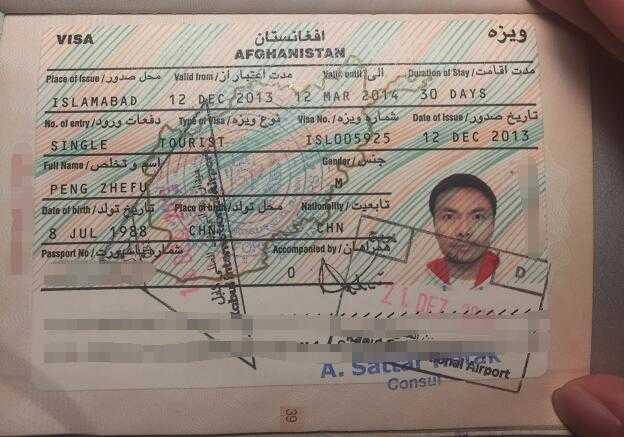 VISA افغانستان ویزه
AFGHANISTAN
Place of Issue / محل صدور Valid from / مدت اعتبار از Valid until / الی Duration of Stay / مدت اقامت
ISLAMABAD 12 DEC 2013 12 MAR 2014 30 DAYS
No. of entry / دفعات ورود Type of Visa / نوع ویزه Visa No. / شماره ویزه Date of Issue / تاریخ صدور
SINGLE TOURIST ISL005925 12 DEC 2013
Full Name / اسم و تخلص Gender / جنس
PENG ZHEFU M
Date of birth / تاریخ تولد Place of birth / محل تولد Nationality / تابعیت
8 JUL 1988 CHN CHN
Passport No / شماره پاسپورت Accompanied by / همراهان
0
D
21 DEZ
A. Sattar
Consul
onal Airport
39